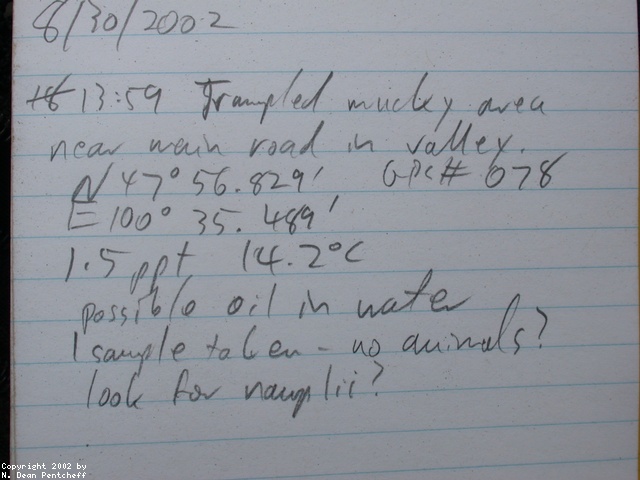 8/30/2002
18 13:59 Trampled mucky area
near main road in valley.
N 47° 56.829' GPS# 078
E 100° 35.489'
1.5 ppt 14.2°C
possible oil in water
1 sample taken - no animals?
look for nauplii?
Copyright 2002 by
N. Dean Pentcheff